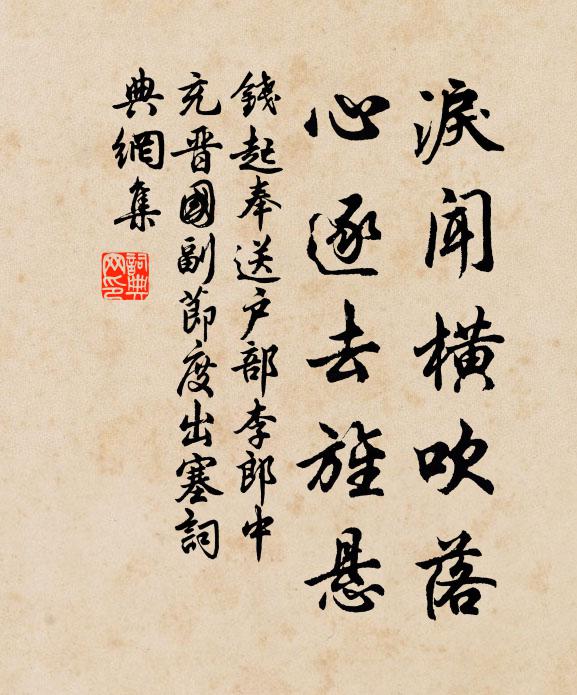 淚聞橫吹落
心逐去旌懸
錢起奉送户部李郎中
充晋國副節度出塞詞
典網集
詞典网印